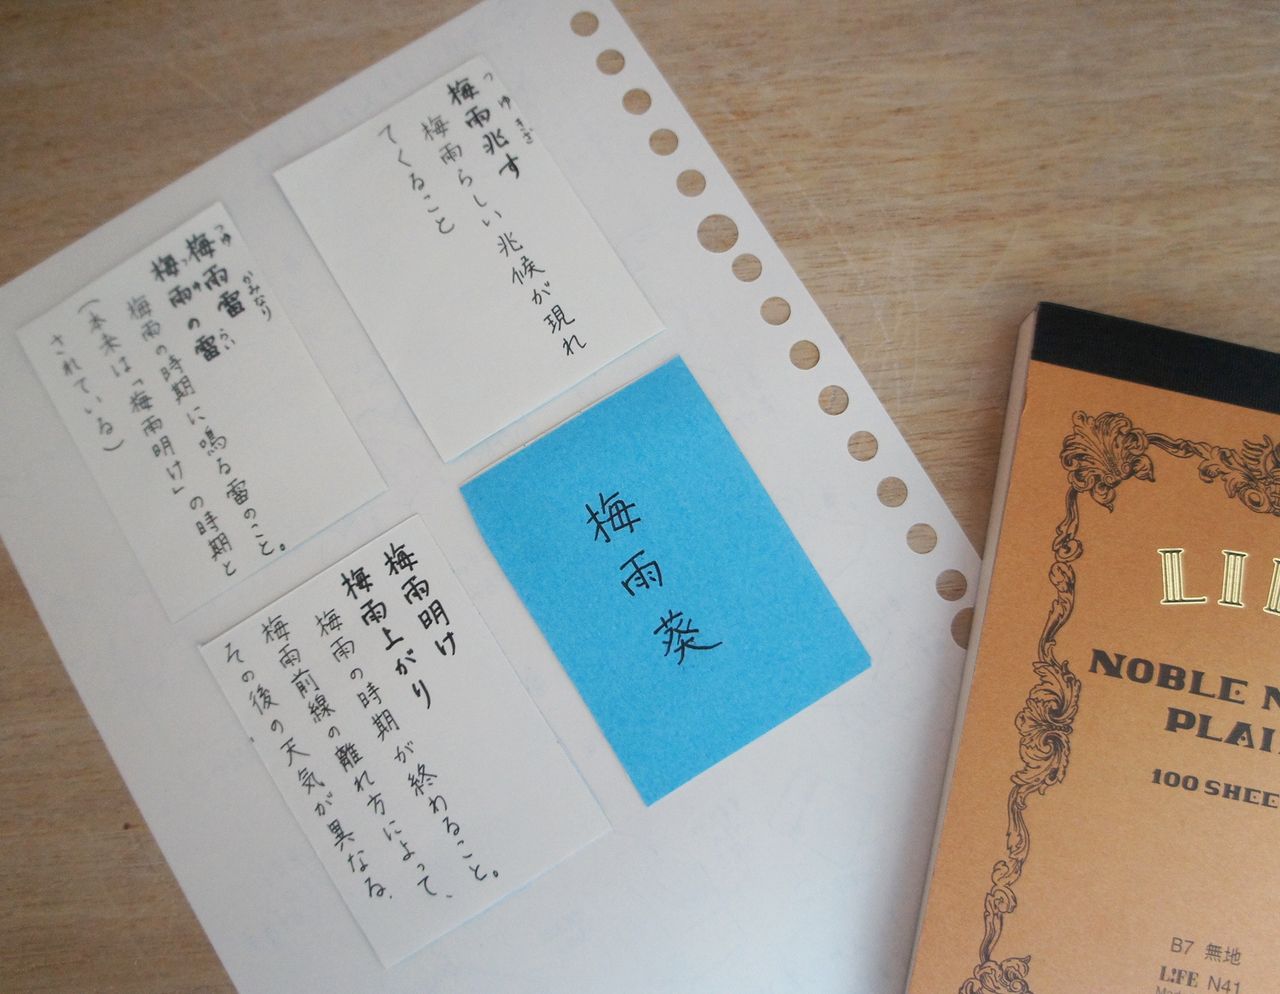 梅雨兆す
つゆきざ
梅雨らしい兆候が現れ
てくること
梅雨雷
つゆかみなり
梅雨の雷
つゆらい
梅雨の時期に鳴る雷のこと。
(本来は「梅雨明け」の時期と
されている)
梅雨葵
梅雨明け
梅雨上がり
梅雨の時期が終わること。
梅雨前線の離れ方によって、
その後の天気が異なる.
NOBLE
PLAI
100 SHEE
B7 無地
L!FE N41